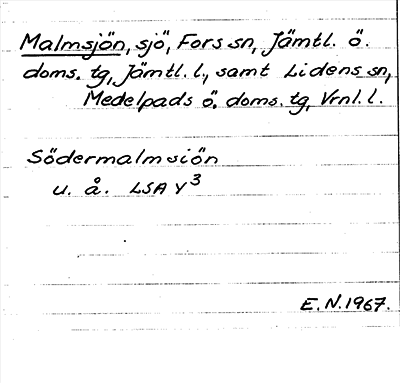 Malmsjön, sjö, Fors sn, Jämtl. ö.
doms. tg, Jämtl. l., samt Lidens sn,
Medelpads ö. doms. tg, Vrnl. l.
Södermalmsiön
u. å. LSA Y3
E.N. 1967.